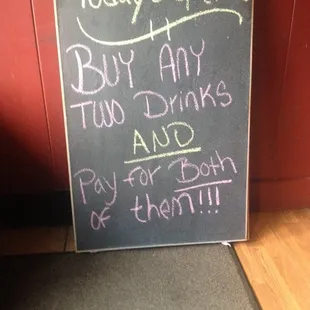 Today's
BUY ANY
TWO DRINKS
AND
Pay for Both
of them!!!